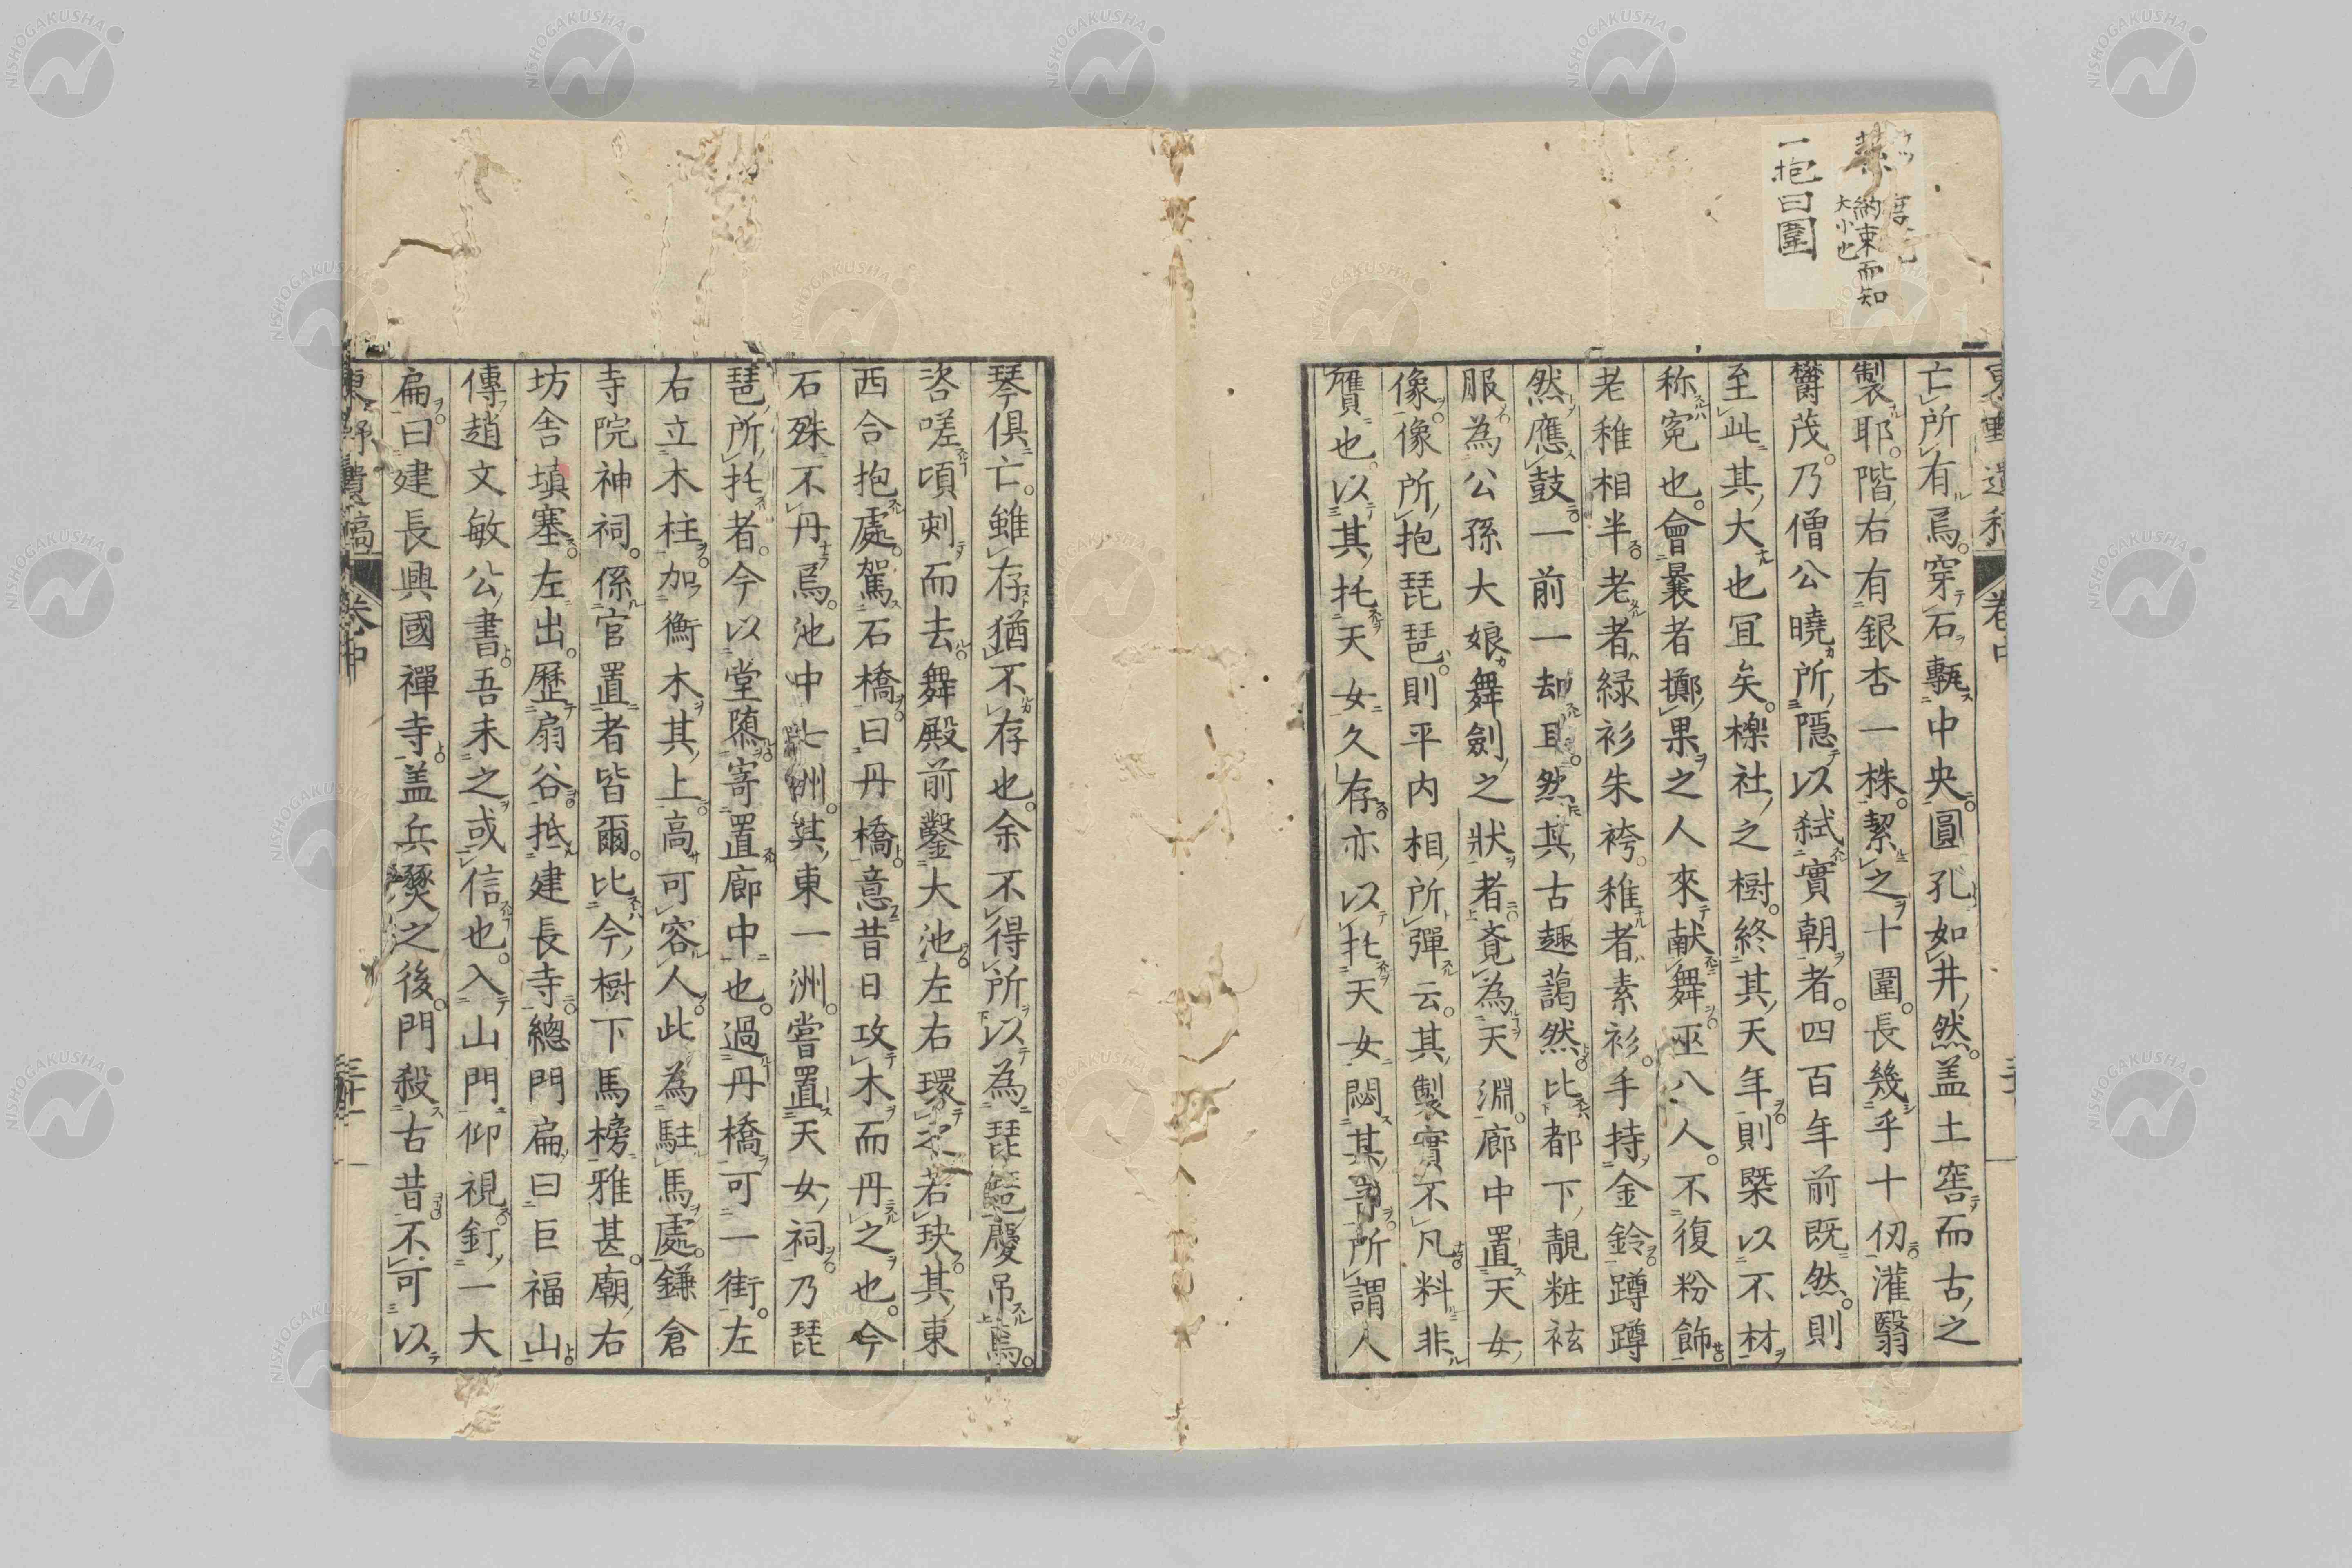 一抱曰圍
絜
納束而知
大小也
亡所有焉穿石甎中央圓孔如井然盖土窖而古之
製耶階右有銀杏一株絜之十圍長幾乎十仞灌翳
欝茂乃僧公曉所隱以弑實朝者四百年前既然則
至此其大也冝矣櫟社之樹終其天年則槩以不材
称寃也會曩者擲果之人來献舞巫八人不復粉飾
老稚相半老者緑衫朱袴稚者素衫手持金鈴蹲蹲
然應鼓一前一却耳然其古趣藹然比都下靚粧袨
服為公孫大娘舞劍之狀者竟為天淵廊中置天女
像像所抱琵琶則平内相所彈云其製實不凡料非
贋也以其托天女久存亦以托天女悶其所謂人
琴俱亡雖存猶不存也余不得所以為琵琶慶吊焉
咨嗟頃刺而去舞殿前鑿大池左右環之若玦其東
西合抱處駕石橋曰丹橋意昔日攻木而丹之也今
石殊不丹焉池中七洲其東一洲嘗置天女祠乃琵
琶所托者今以堂隳寄置廊中也過丹橋可一街左
右立木柱加衡木其上高可容人此為駐馬處鎌倉
寺院神祠係官置者皆爾比今樹下馬榜雅甚廟右
坊舍填塞左出歷扇谷抵建長寺總門扁曰巨福山
傳趙文敏公書吾未之或信也入山門仰視釘一大
扁曰建長興國禪寺盖兵燹之後門殺古昔不可以
東野遺稿
卷中